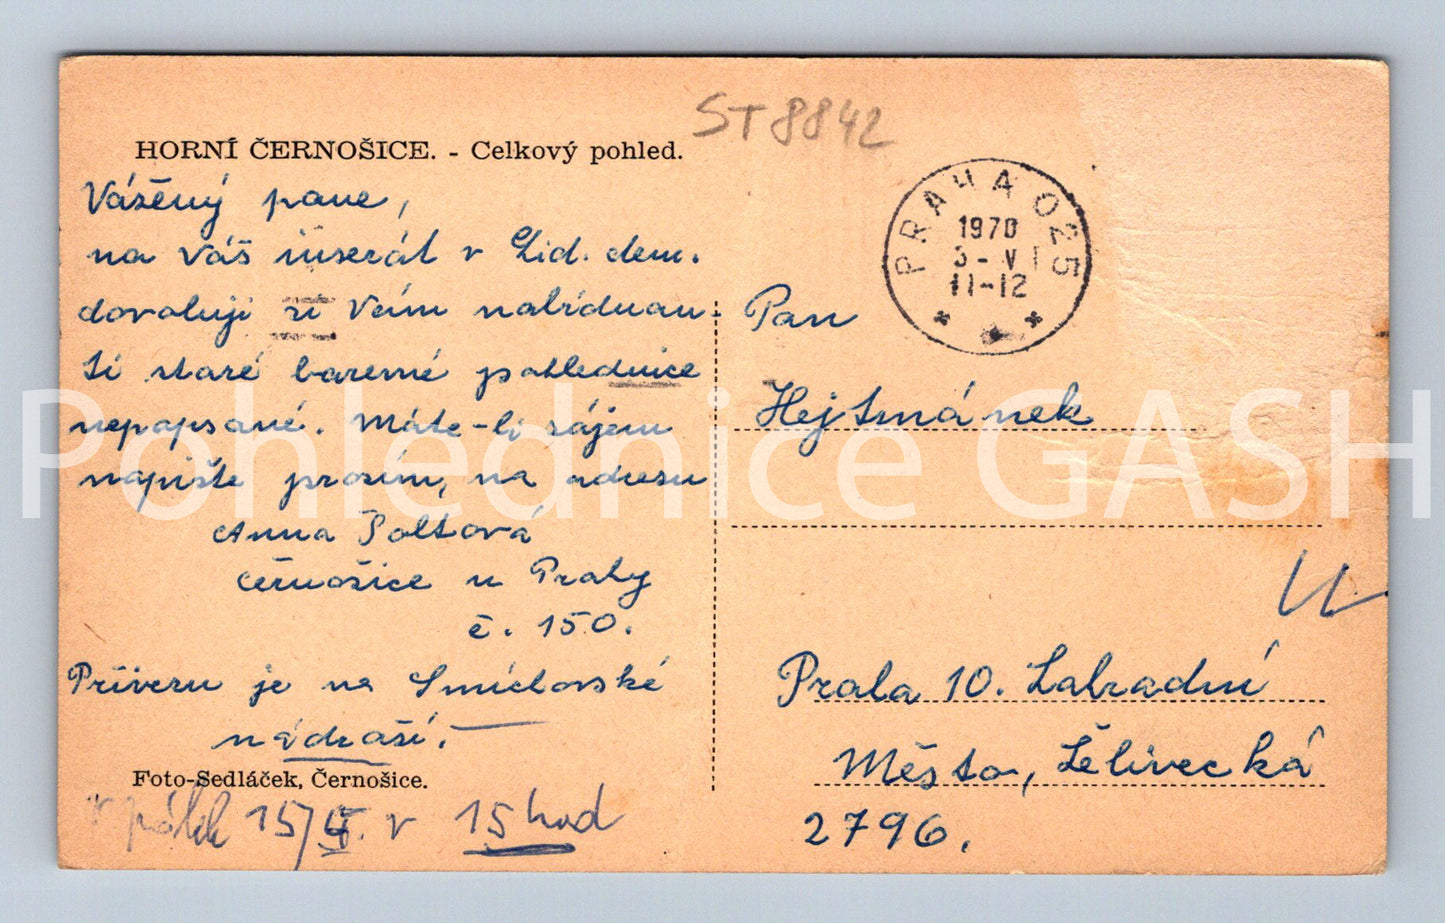 ST 8842
HORNÍ ČERNOŠICE. - Celkový pohled.
Vážený pane,
na Váš inserát v Lid. dem.
dovoluji si Vám nabídnou-
ti staré barevné pohlednice
nepopsané. Máte-li zájem
napište prosím, na adresu
Anna Poltová
Černošice u Prahy
č. 150.
Přivezu je na Smíchovské
nádraží.
Foto-Sedláček, Černošice.
v pátek 15/5. v 15 hod
PRAHA 025
1970
11-12
Pan
Hejtmánek
Praha 10. Zahradní
Město, Želivecká
2796.
Pohlednice GASH